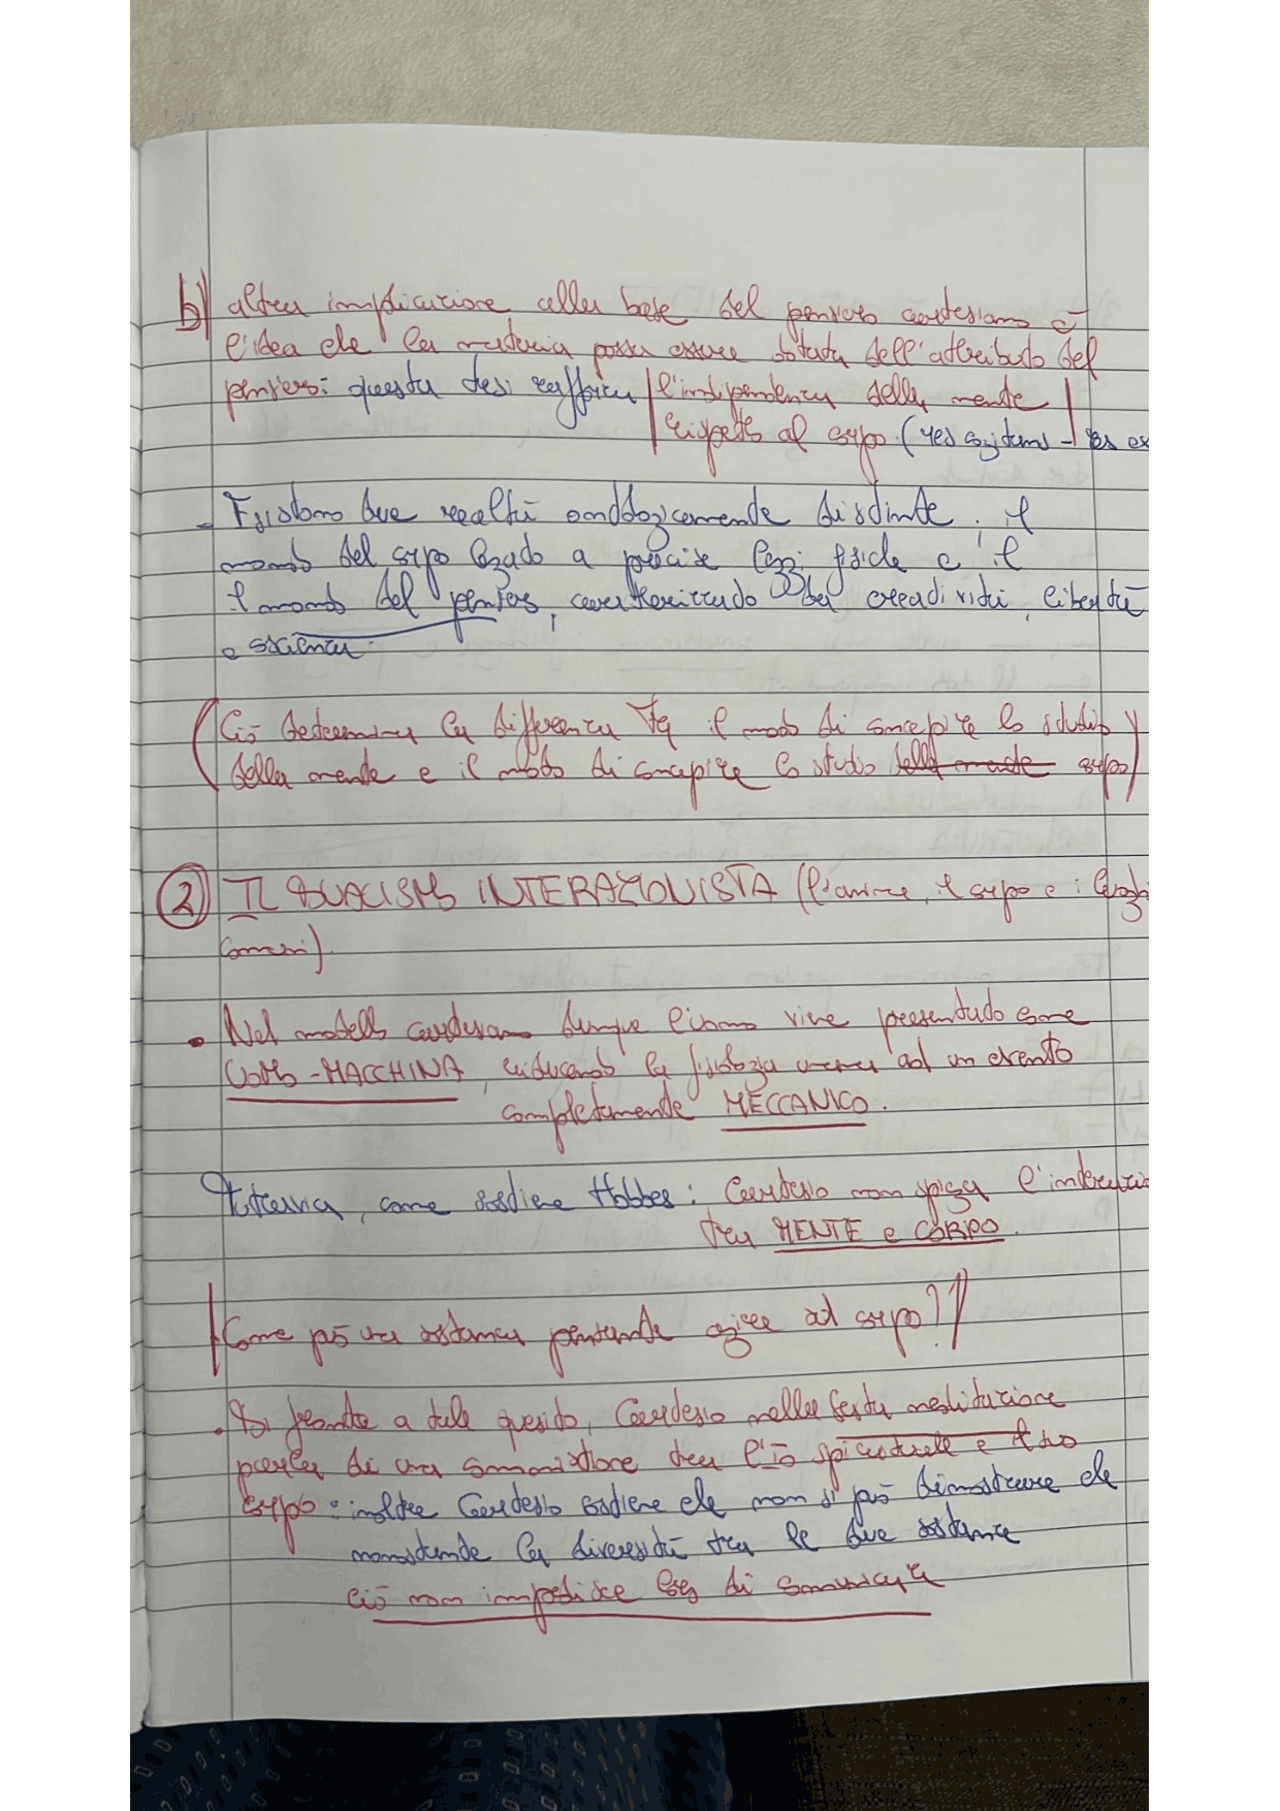 b) altra implicazione alla base del pensiero cartesiano è
l'idea che la materia possa essere dotata dell'attributo del
pensiero: questa tesi raffica l'indipendenza della mente
rispetto al corpo. (res cogitans - res ex
- Esistono due realtà ontologicamente distinte: il
mondo del corpo legato a precise leggi fisiche e il
il mondo del pensiero, caratterizzato da creatività, libertà
e scienza.
(Ciò determina la differenza tra il modo di concepire lo studio
della mente e il modo di concepire lo studio della mente corpo)
2 IL DUALISMO INTERAZIONISTA (l'anima, il corpo e i luoghi
comuni).
• Nel modello cartesiano dunque l'uomo vive presentato come
UOMO-MACCHINA, riducendo la fisiologia umana ad un evento
completamente MECCANICO.
Tuttavia, come sostiene Hobbes: Cartesio non spiega l'interazio
tra MENTE e CORPO.
Come può una sostanza pensante agire sul corpo??
• Di fronte a tale quesito, Cartesio nella sesta meditazione
parla di una connessione tra l'io spirituale e il suo
corpo: inoltre Cartesio sostiene che non si può dimostrare che
nonostante la diversità tra le due sostanze
ciò non impedisce loro di comunicare